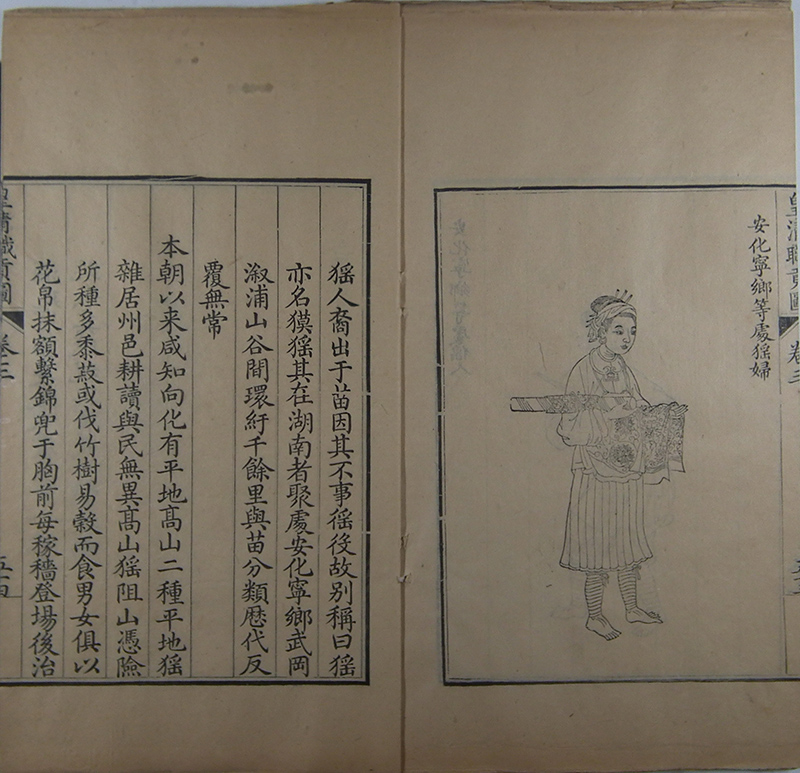 安化寧鄉等處猺婦
皇清職貢圖 卷三
猺人裔出于苗因其不事徭役故別稱曰猺
亦名獏猺其在湖南者聚處安化寧鄉武岡
溆浦山谷間環紆千餘里與苗分類歷代反
覆無常
本朝以来咸知向化有平地高山二種平地猺
雜居州邑耕讀與民無異高山猺阻山憑險
所種多黍菽或伐竹樹易穀而食男女俱以
花帛抹額繫錦兜于胸前每稼穡登場後治
皇清職貢圖 卷三